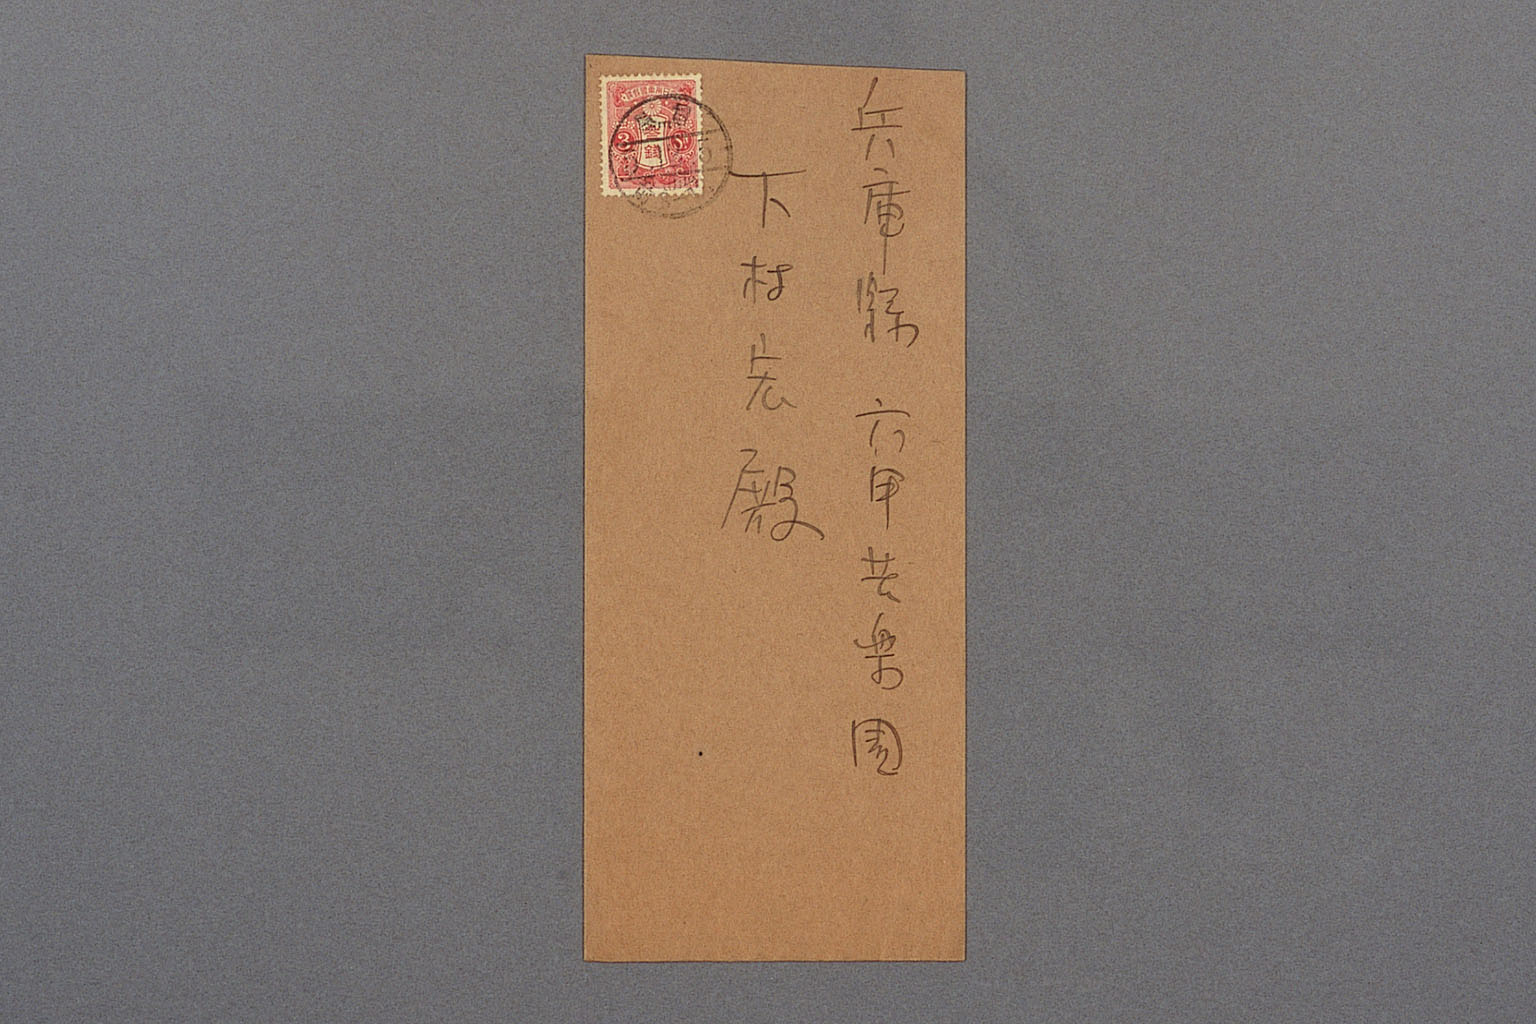 兵庫縣 六甲苦楽園
下村宏殿
3 銭 3